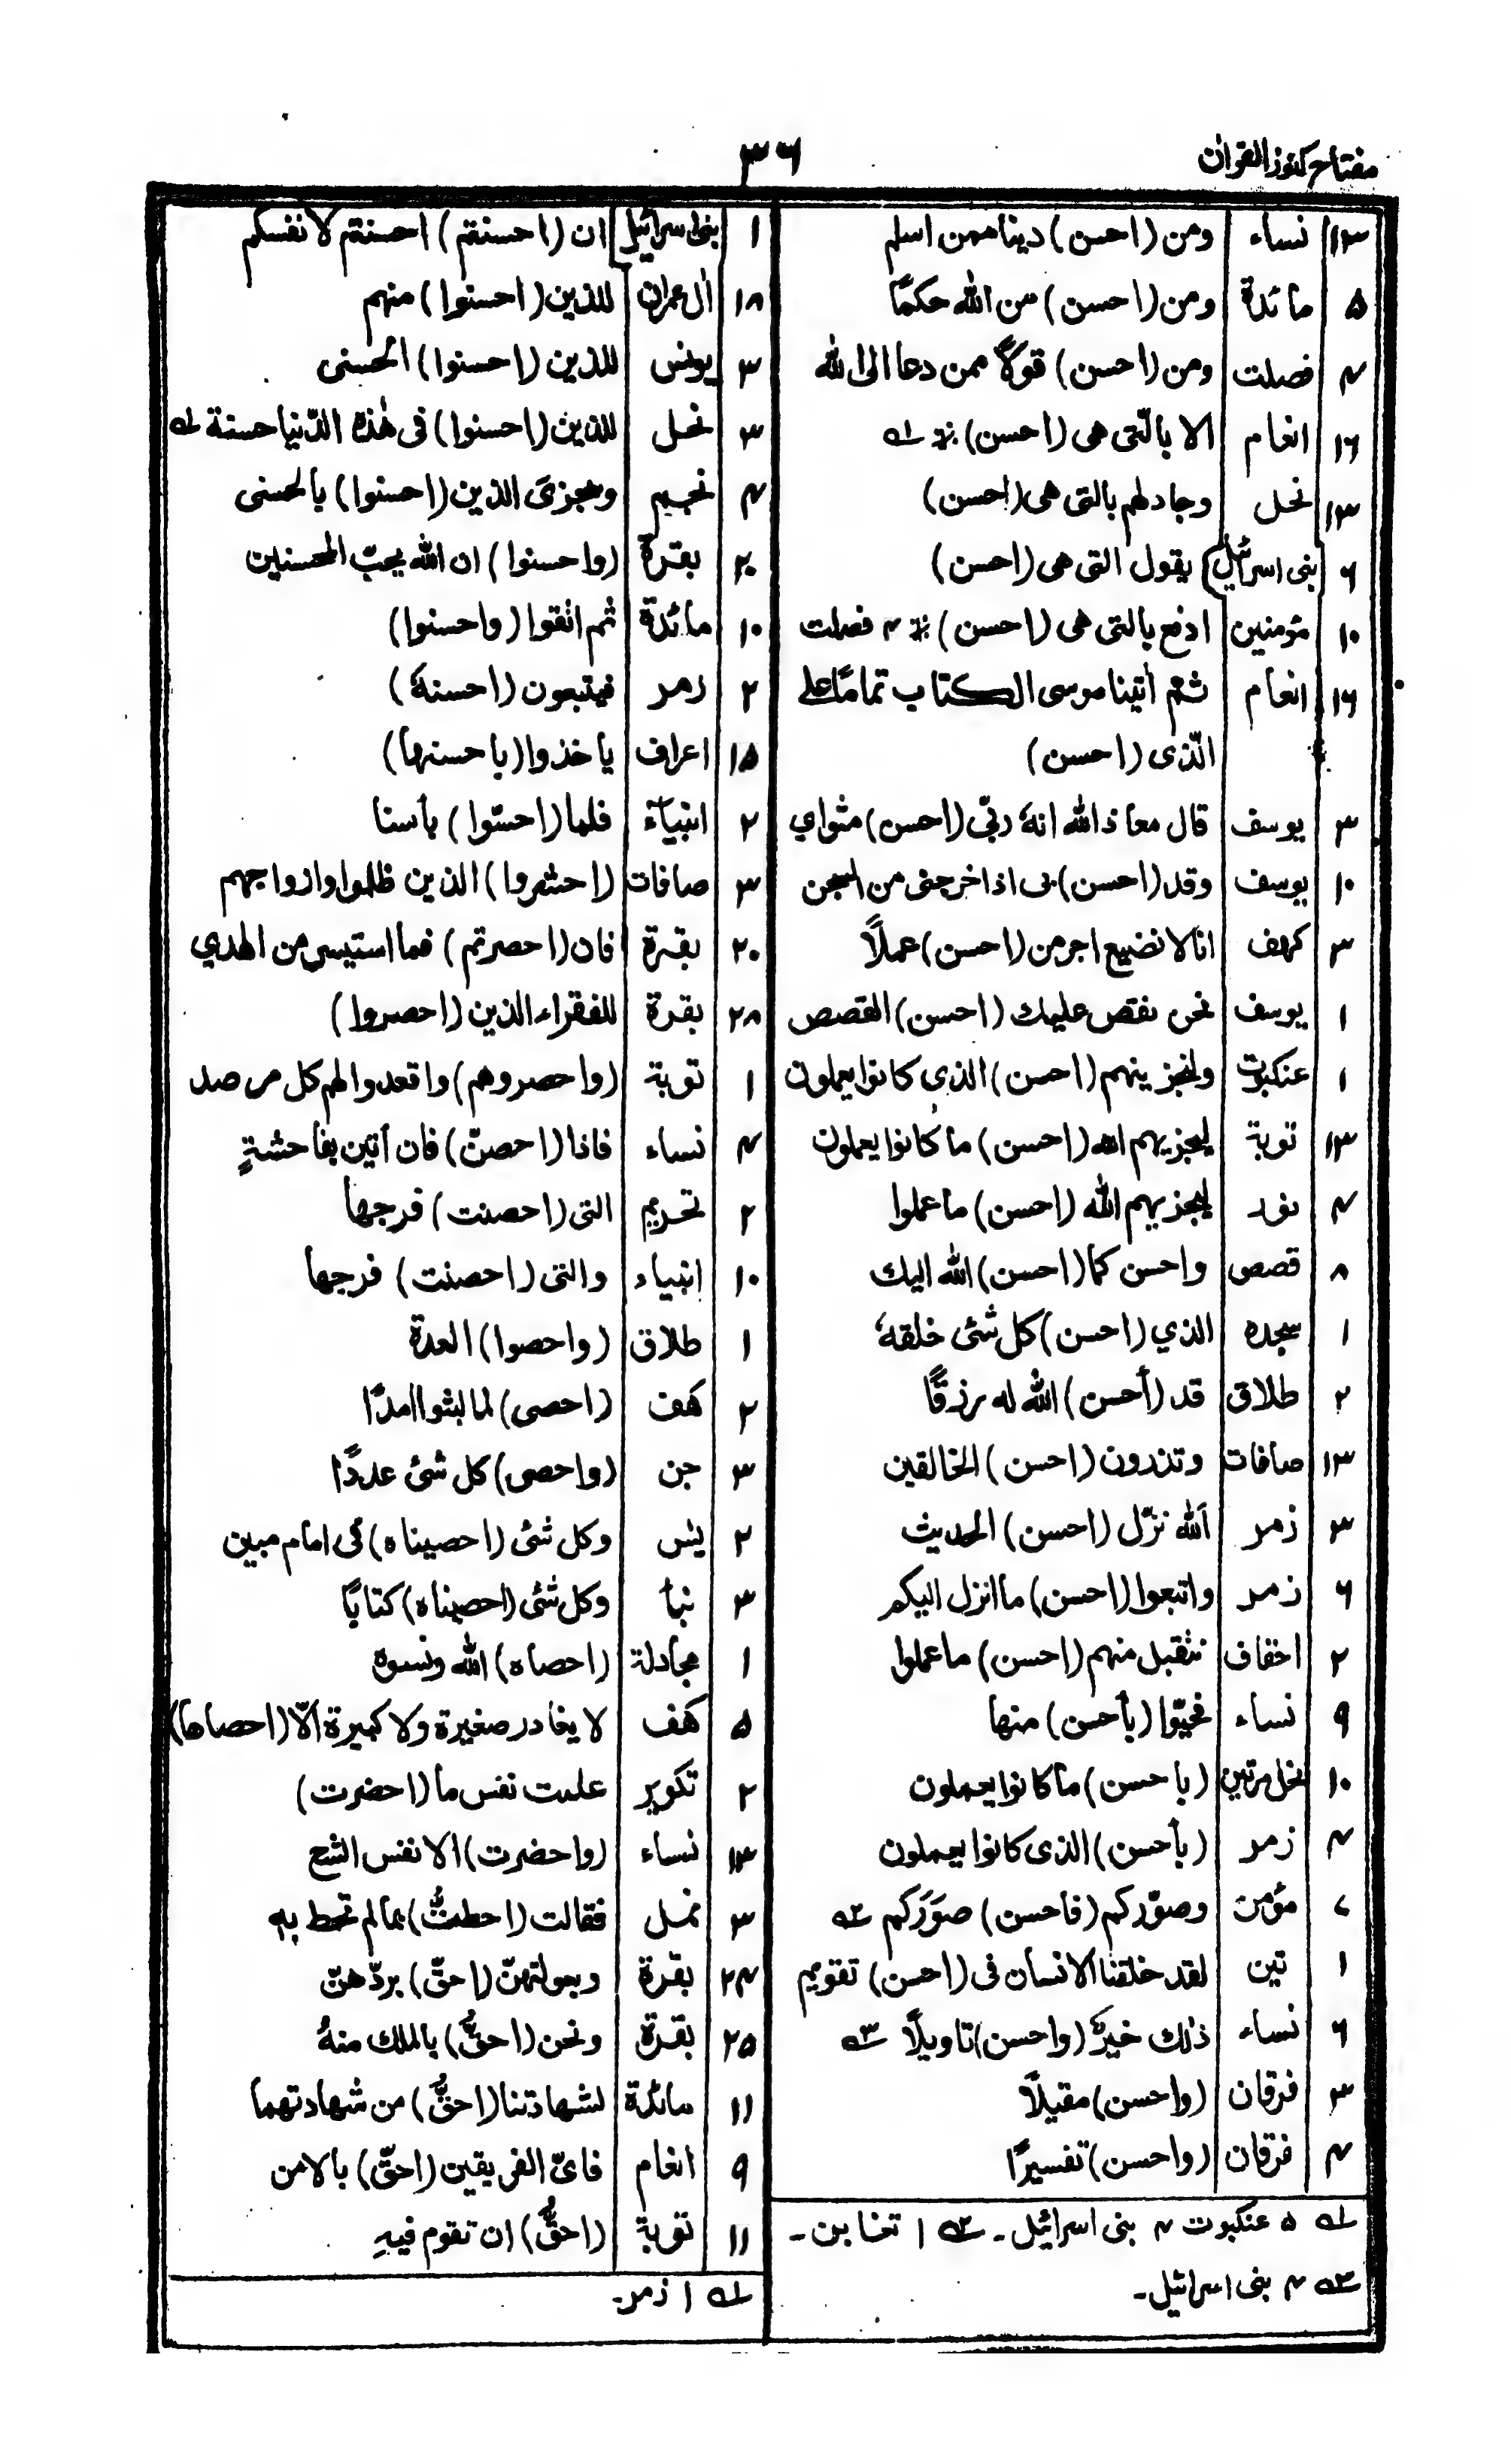 مفتاح كنوز القرآن
٣٦
١٣ نساء ومن (احسن) دينا ممن اسلم
٥ مائدة ومن (احسن) من الله حكمًا
٤ فصلت ومن (احسن) قولاً ممن دعا الى الله
١٦ انعام الا بالّتى هى (احسن) ٪ ؎١
١٣ نحل وجادلهم بالتى هى (احسن)
٦ بنى اسرائيل يقول التى هى (احسن)
١٠ مؤمنين ادفع بالتى هى (احسن) ٪ ٤ فصلت
١٦ انعام ثم اٰتينا موسى الكتاب تمامًا على
الّذى (احسن)
٣ يوسف قال معاذ الله انهٗ ربّى (احسن) مثواي
١٠ يوسف وقد (احسن) بى اذ اخرجنى من السجن
٣ كهف انا لا نضيع اجر من (احسن) عملاً
١ يوسف نحن نقص عليك (احسن) القصص
١ عنكبوت ولنجزينهم (احسن) الذى كانوا يعملون
١٣ توبة ليجزيهم الله (احسن) ما كانوا يعملون
٤ نور ليجزيهم الله (احسن) ما عملوا
٨ قصص واحسن كما (احسن) الله اليك
١ سجده الذي (احسن) كل شئ خلقهٗ
٢ طلاق قد (أحسن) الله له رزقًا
١٣ صافات وتذرون (احسن) الخالقين
٣ زمر الله نزّل (احسن) الحديث
٦ زمر واتبعوا (احسن) ما انزل اليكم
٢ احقاف نتقبل منهم (احسن) ما عملوا
٩ نساء فحيّوا (بأحسن) منها
١٠ نحل مرتين (باحسن) ما كانوا يعملون
٤ زمر (بأحسن) الذى كانوا يعملون
٧ مؤمن وصوّركم (فاحسن) صوَرَكم ؎٢
١ تين لقد خلقنا الانسان فى (احسن) تقويم
٦ نساء ذلك خيرٌ (واحسن) تاويلاً ؎٣
٣ فرقان (واحسن) مقيلاً
٤ فرقان (واحسن) تفسيرًا
؎١ ٥ عنكبوت ٤ بنى اسرائيل ـ ؎٢ ١ تغابن ـ
؎٣ ٤ بنى اسرائيل ـ
١ بنى اسرائيل ان (احسنتم) احسنتم لانفسكم
١٨ اٰل عمران للذين (احسنوا) منهم
٣ يونس للذين (احسنوا) الحسنى
٣ نحل للذين (احسنوا) فى هٰذه الدّنيا حسنة ؎١
٤ نجم ويجزى الذين (احسنوا) بالحسنى
٢٠ بقرة (واحسنوا) ان الله يحبّ المحسنين
١٠ مائدة ثم اتقوا (واحسنوا)
٢ زمر فيتبعون (احسنهٗ)
١٥ اعراف ياخذوا (باحسنها)
٢ انبياء فلما (احسّوا) بأسنا
٣ صافات (احشروا) الذين ظلموا وازواجهم
٢٠ بقرة فان (احصرتم) فما استيسر من الهدي
٢٨ بقرة للفقراء الذين (احصروا)
١ توبة (واحصروهم) واقعدوا لهم كل مرصد
٤ نساء فاذا (احصنّ) فان أتين بفاحشةٍ
٢ تحريم التى (احصنت) فرجها
١٠ انبياء والتى (احصنت) فرجها
١ طلاق (واحصوا) العدة
٢ كهف (احصى) لما لبثوا امدًا
٣ جن (واحصى) كل شئ عددًا
٢ يٰس وكل شئ (احصيناه) فى امام مبين
٣ نبأ وكل شئ (احصيناه) كتابًا
١ مجادلة (احصاه) الله ونسوه
٥ كهف لا يغادر صغيرة ولا كبيرة الّا (احصاها)
٢ تكوير علمت نفس ما (احضرت)
١٣ نساء (واحضرت) الانفس الشح
٣ نمل فقالت (احطتُّ) بما لم تحط به
٢٤ بقرة وبعولتهنّ (احقّ) بردّهنّ
٢٥ بقرة ونحن (احقُّ) بالملك منهُ
١١ مائدة لشهادتنا (احقُّ) من شهادتهما
٩ انعام فاىّ الفريقين (احقّ) بالامن
١١ توبة (احقُّ) ان تقوم فيهِ
؎١ ١ زمر ـ